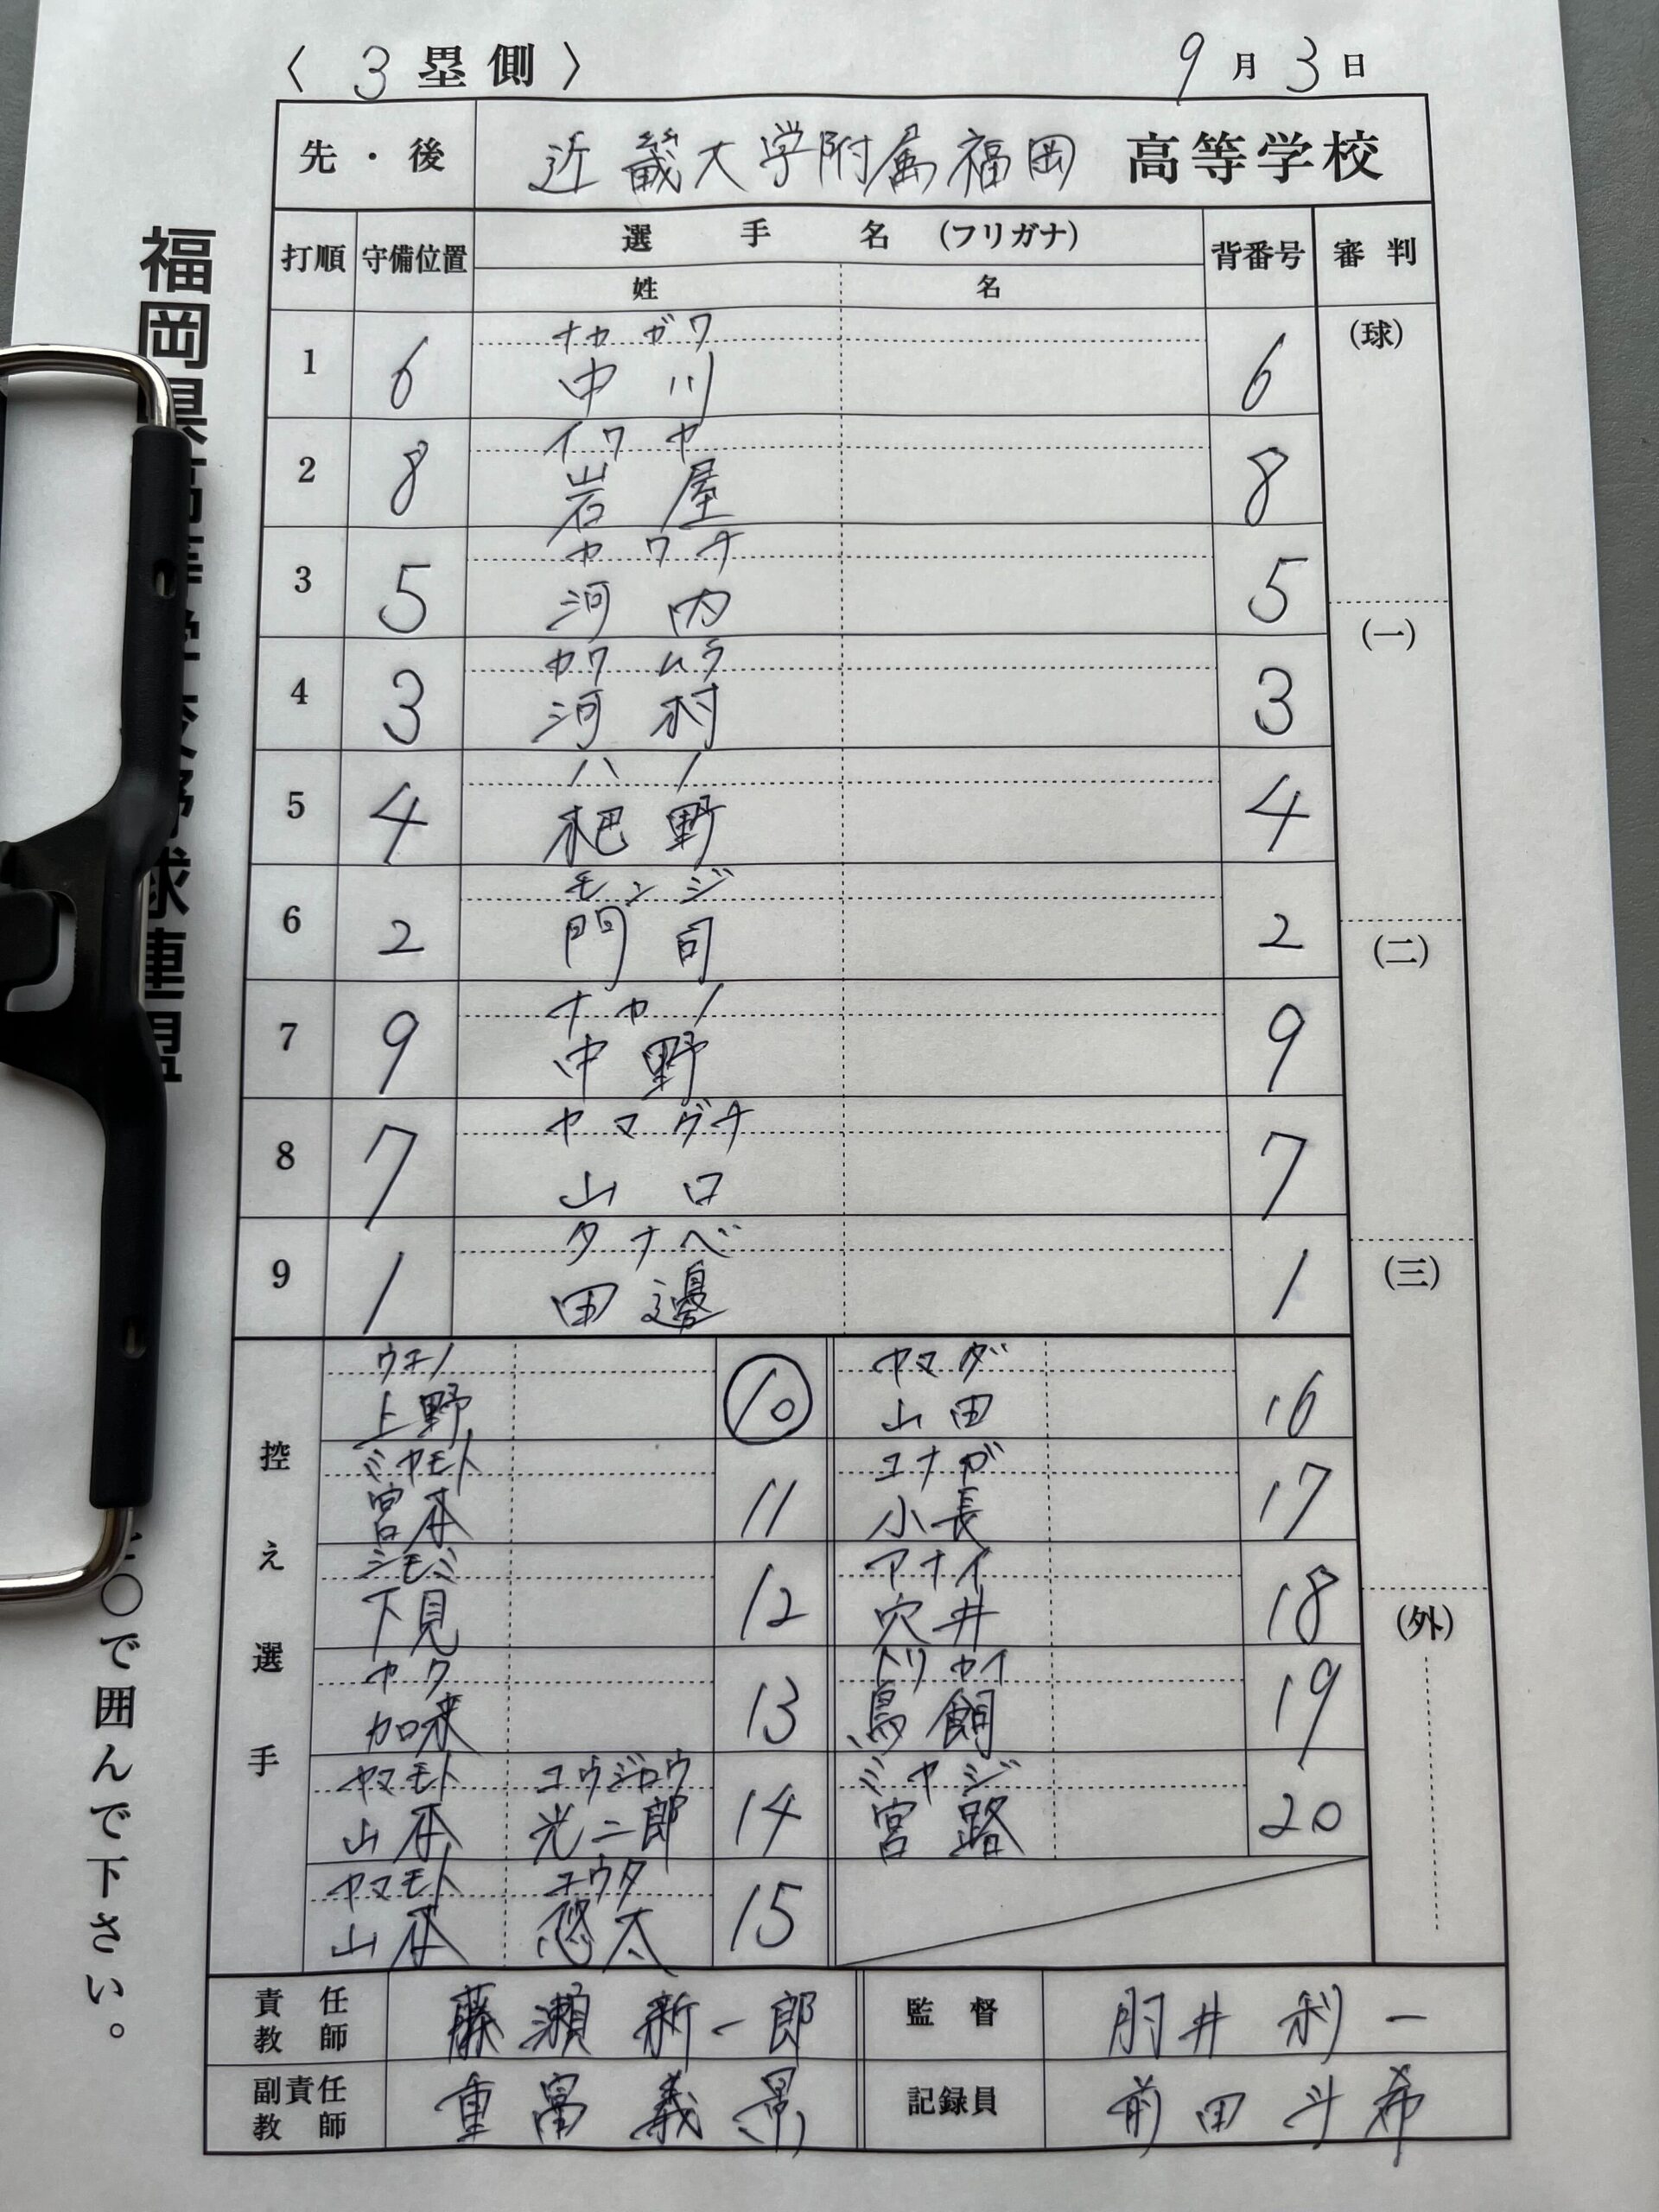 〈 3 塁 側 〉 9 月 3 日
先 ・ 後 近畿大学附属福岡 高等学校
打順 守備位置 選 手 名 (フリガナ) 背番号 審 判
姓 名
ナカ ガワ
1 6 中 川 6 (球)
イワ ヤ
2 8 岩 屋 8
カ ワ チ
3 5 河 内 5
(一)
カワ ムラ
4 3 河 村 3
ハ ノ
5 4 杷 野 4
モンジ
6 2 門 司 2
(二)
ナカノ
7 9 中 野 9
ヤ マ グチ
8 7 山 口 7
タ ナベ
9 1 田 邊 1
(三)
控え選手
ウエノ
上野 10
ミヤモト
宮本 11
シモミ
下見 12
カク
加来 13
ヤマモト コウジロウ
山本 光二郎 14
ヤマモト ユウタ
山本 悠太 15
ヤマ ダ
山 田 16
コナガ
小長 17
アナイ
穴井 18
トリカイ
鳥飼 19
ミヤジ
宮路 20
(外)
責任教師 藤瀬 新一郎 監督 肘井 利一
副責任教師 重冨 義景 記録員 前田 斗希
福岡県高等学校野球連盟
○で囲んで下さい。